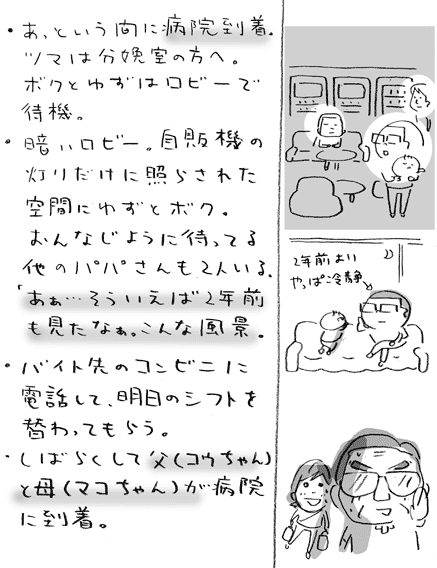 ・あっという間に病院到着.
ツマは分娩室の方へ。
ボクとゆずはロビーで
待機。
・暗いロビー。自販機の
灯りだけに照らされた
空間にゆずとボク。
おんなじように待ってる
他のパパさんも2人いる.
「あぁ…そういえば2年前
も見たなぁ。こんな風景。
・バイト先のコンビニに
電話して、明日のシフトを
替わってもらう。
・しばらくして父(コウちゃん)
と母(マコちゃん)が病院
に到着。
2年前より
やっぱ冷静